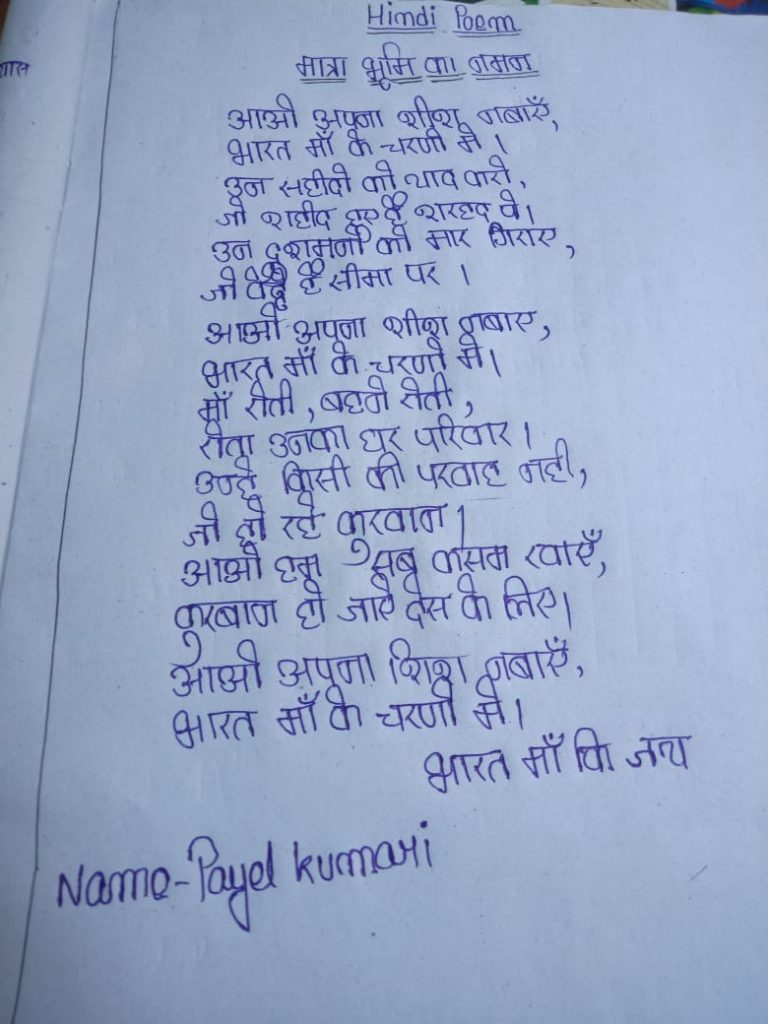 Hindi Poem
यास
मात्रा भूमि का नमन
आओ अपना शीश नबाएँ,
भारत माँ के चरणो मे।
उन सहीदो को याद करो,
जो शहीद हुए है शरहद पे।
उन दुशमनो को मार गिराए,
जो बैठे है सीमा पर।
आओ अपना शीश नबाए,
भारत माँ के चरणो मे।
माँ रोती, बहने रोती,
रोता उनका घर परिवार।
उन्हे किसी की परवाह नही,
जो हो रहे कुरवान।
आओ हम सब कसम खाएँ,
कुरबान हो जाऐ देस के लिए।
आओ अपना शिश नबाएँ,
भारत माँ के चरणो मे।
भारत माँ कि जय
Name-Payel kumari